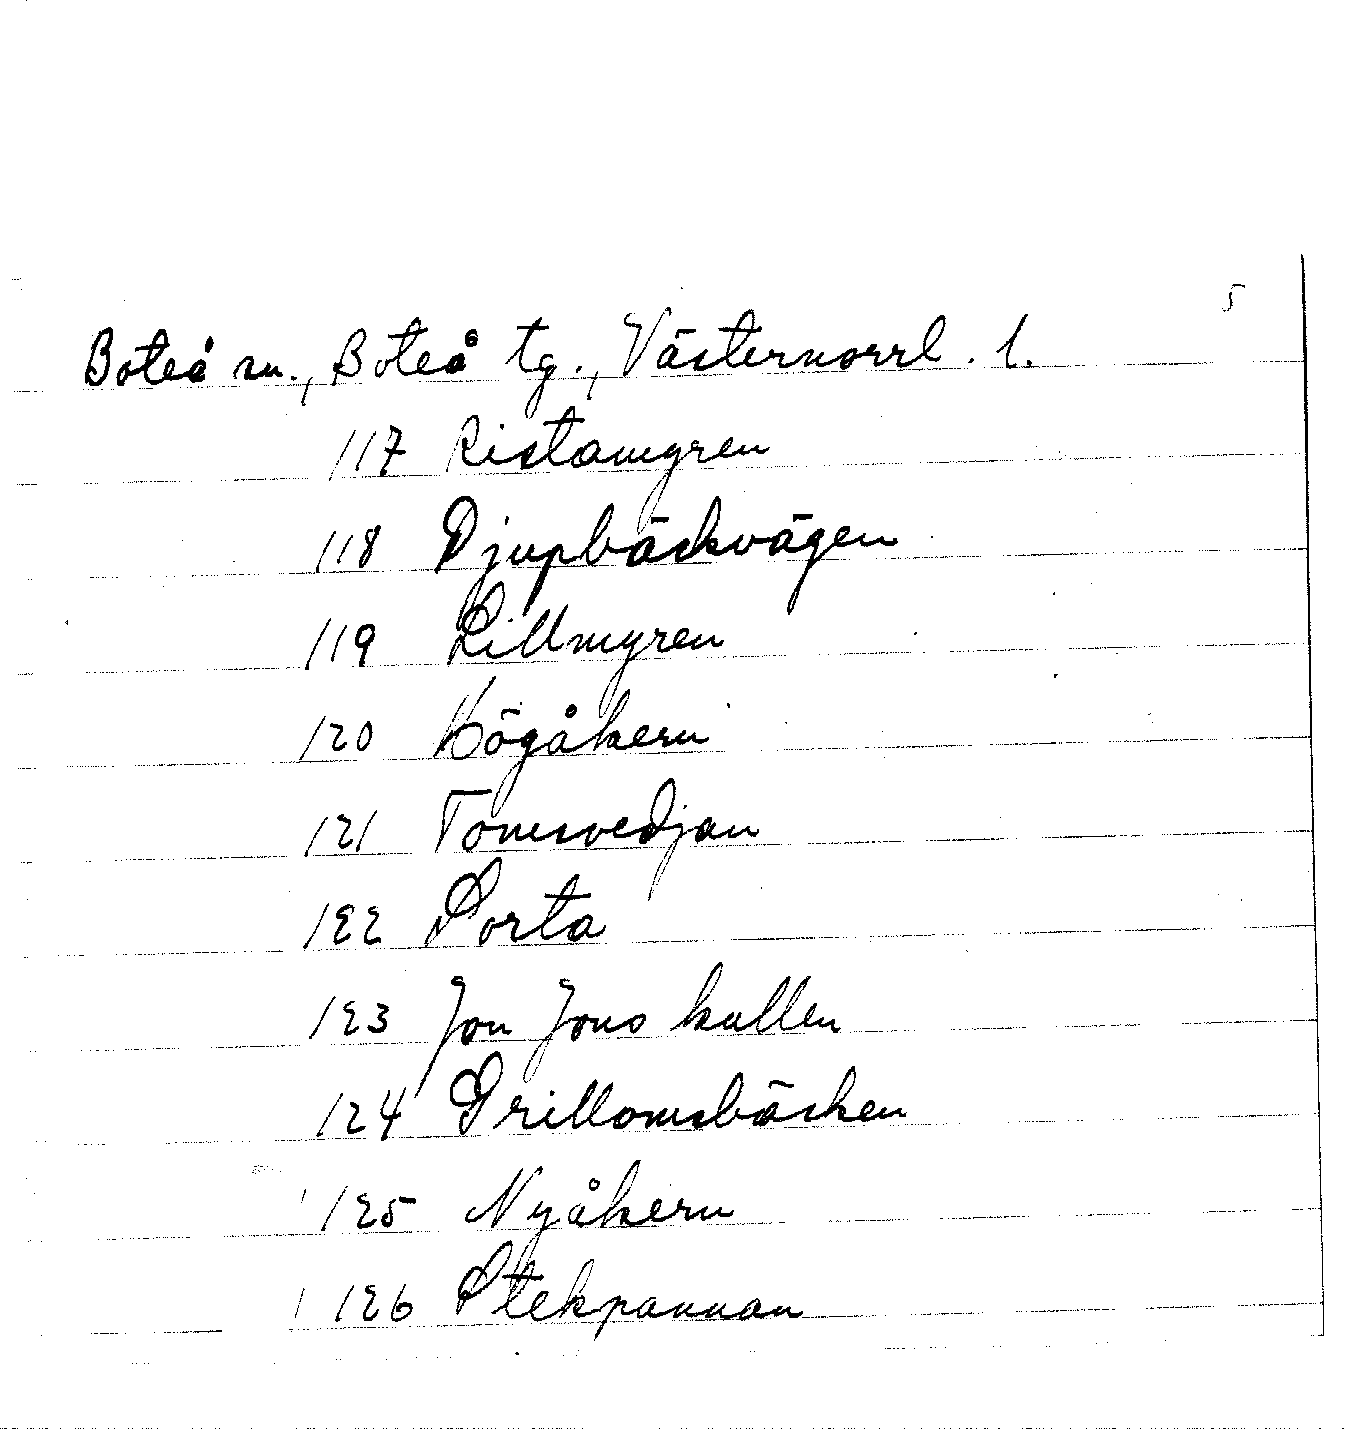 5
Boteå sn., Boteå tg., Västernorrl. l.
117 Ristamyren
118 Djupbäckvägen
119 Lillmyren
120 Högåkern
121 Tomsvedjan
122 Sorta
123 Jon Jons kullen
124 Grillomsbäcken
125 Nyåkern
126 Stekpannan